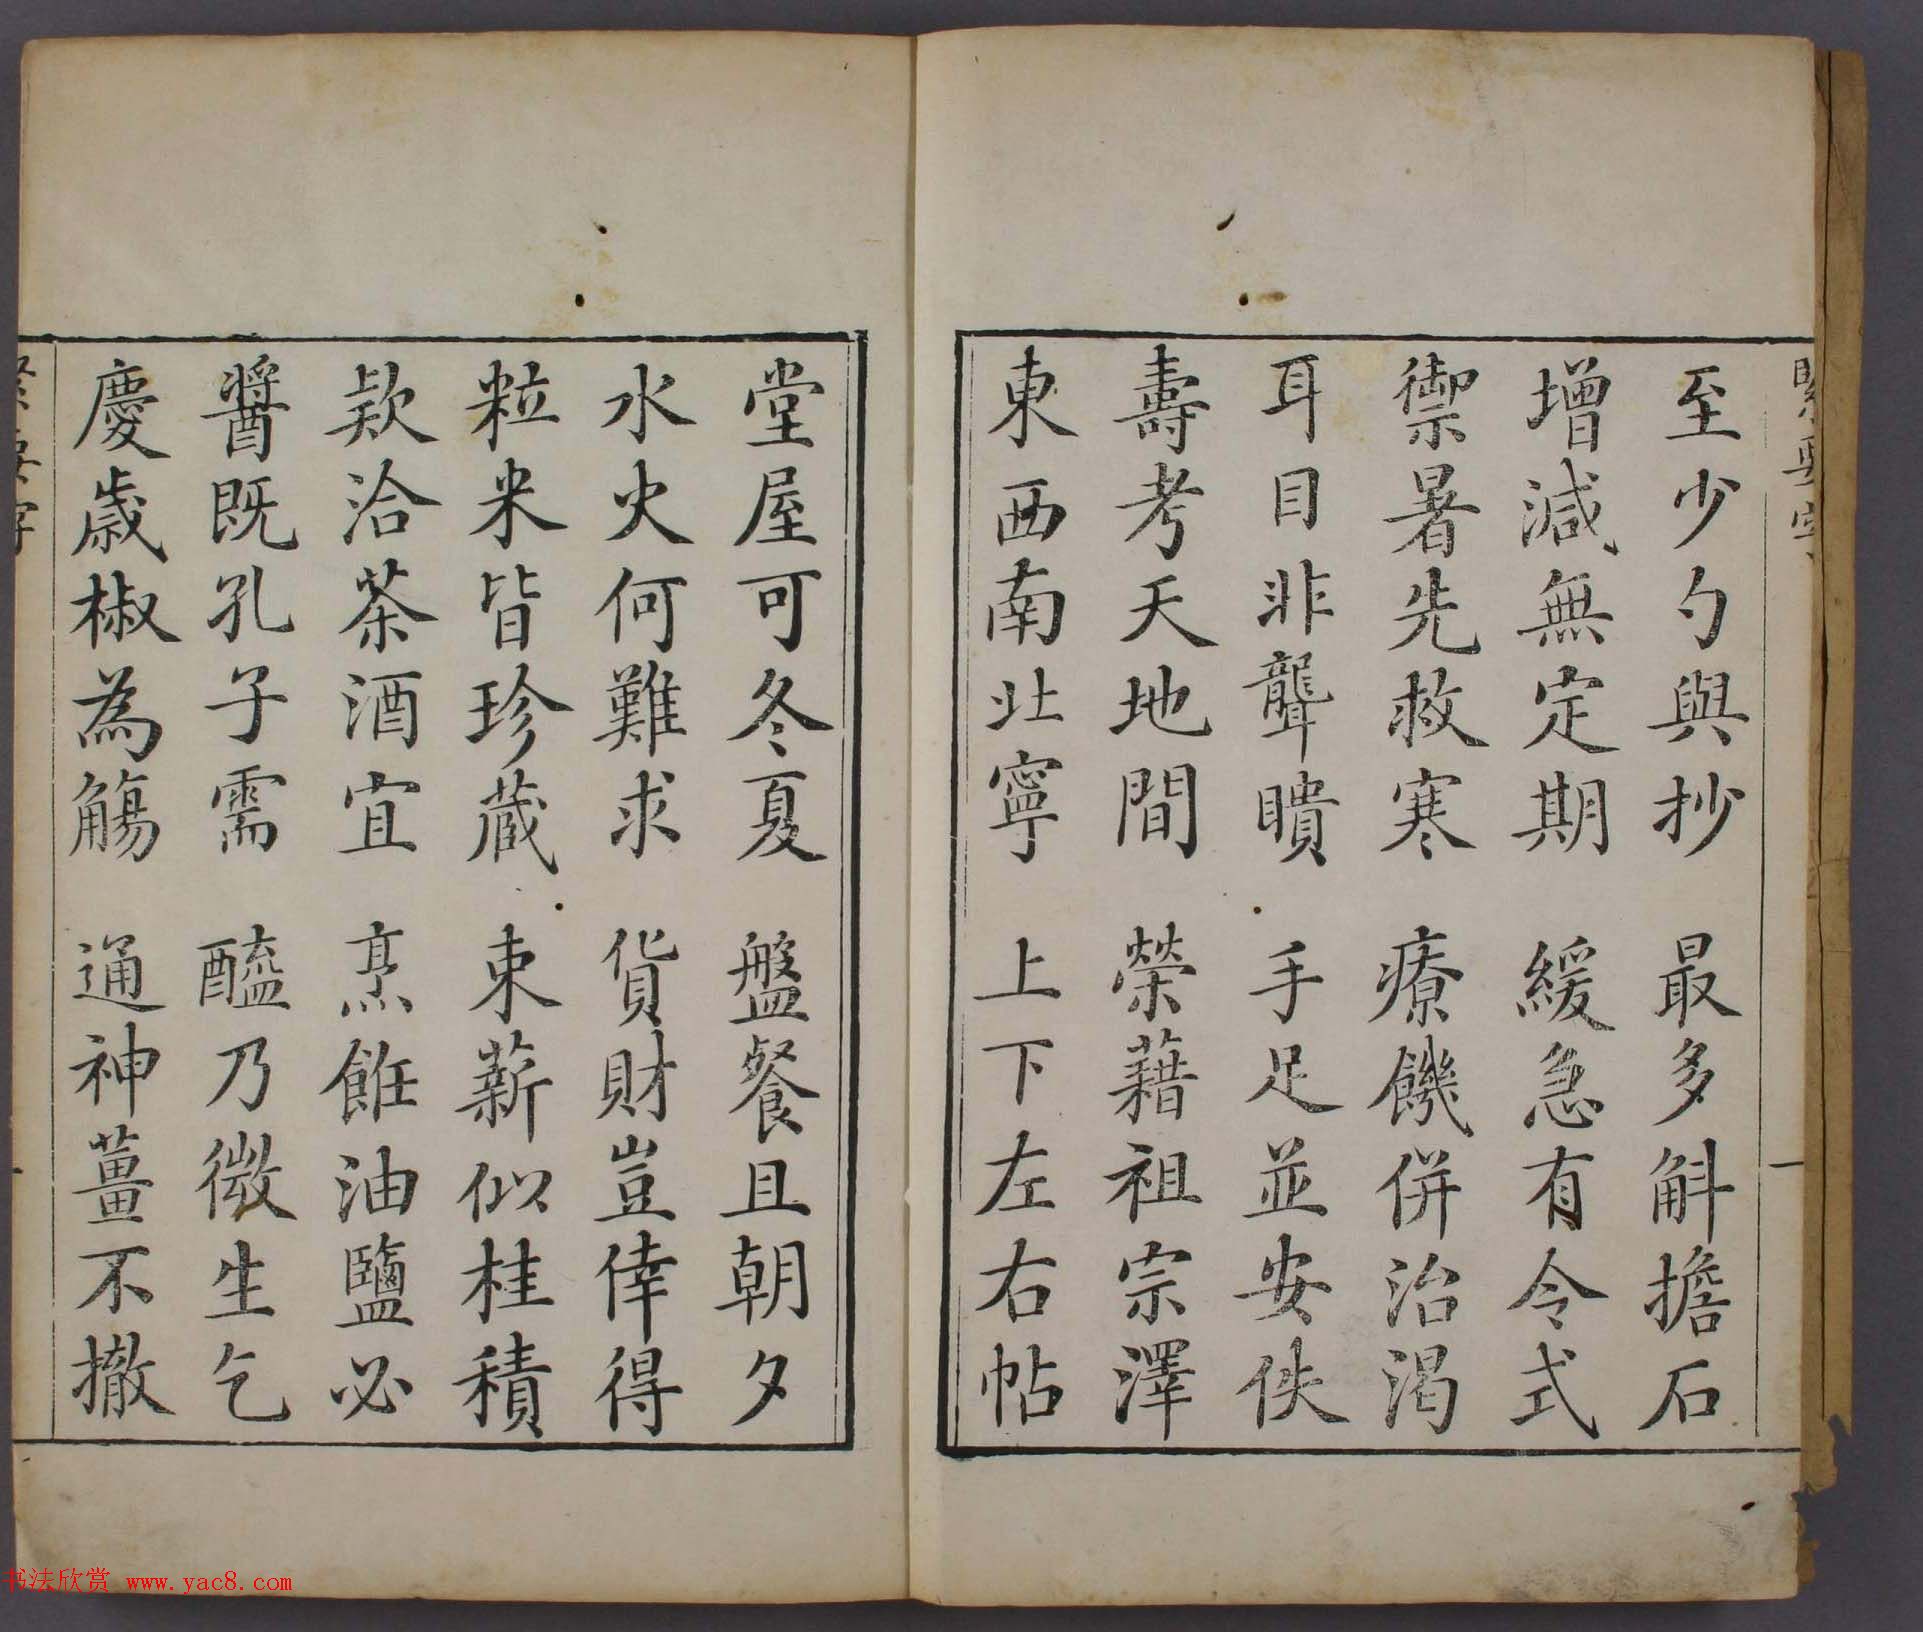 緊要字
一
至少勺與抄 最多斛擔石
增減無定期 緩急有令式
禦暑先救寒 療饑併治渴
耳目非聾瞶 手足並安佚
壽考天地間 榮藉祖宗澤
東西南北寧 上下左右帖
堂屋可冬夏 盤餐且朝夕
水火何難求 貨財豈倖得
粒米皆珍藏 束薪似桂積
欵洽茶酒宜 烹飪油鹽必
醬既孔子需 醯乃微生乞
慶歲椒為觴 通神薑不撤
书法欣赏 www.yac8.com